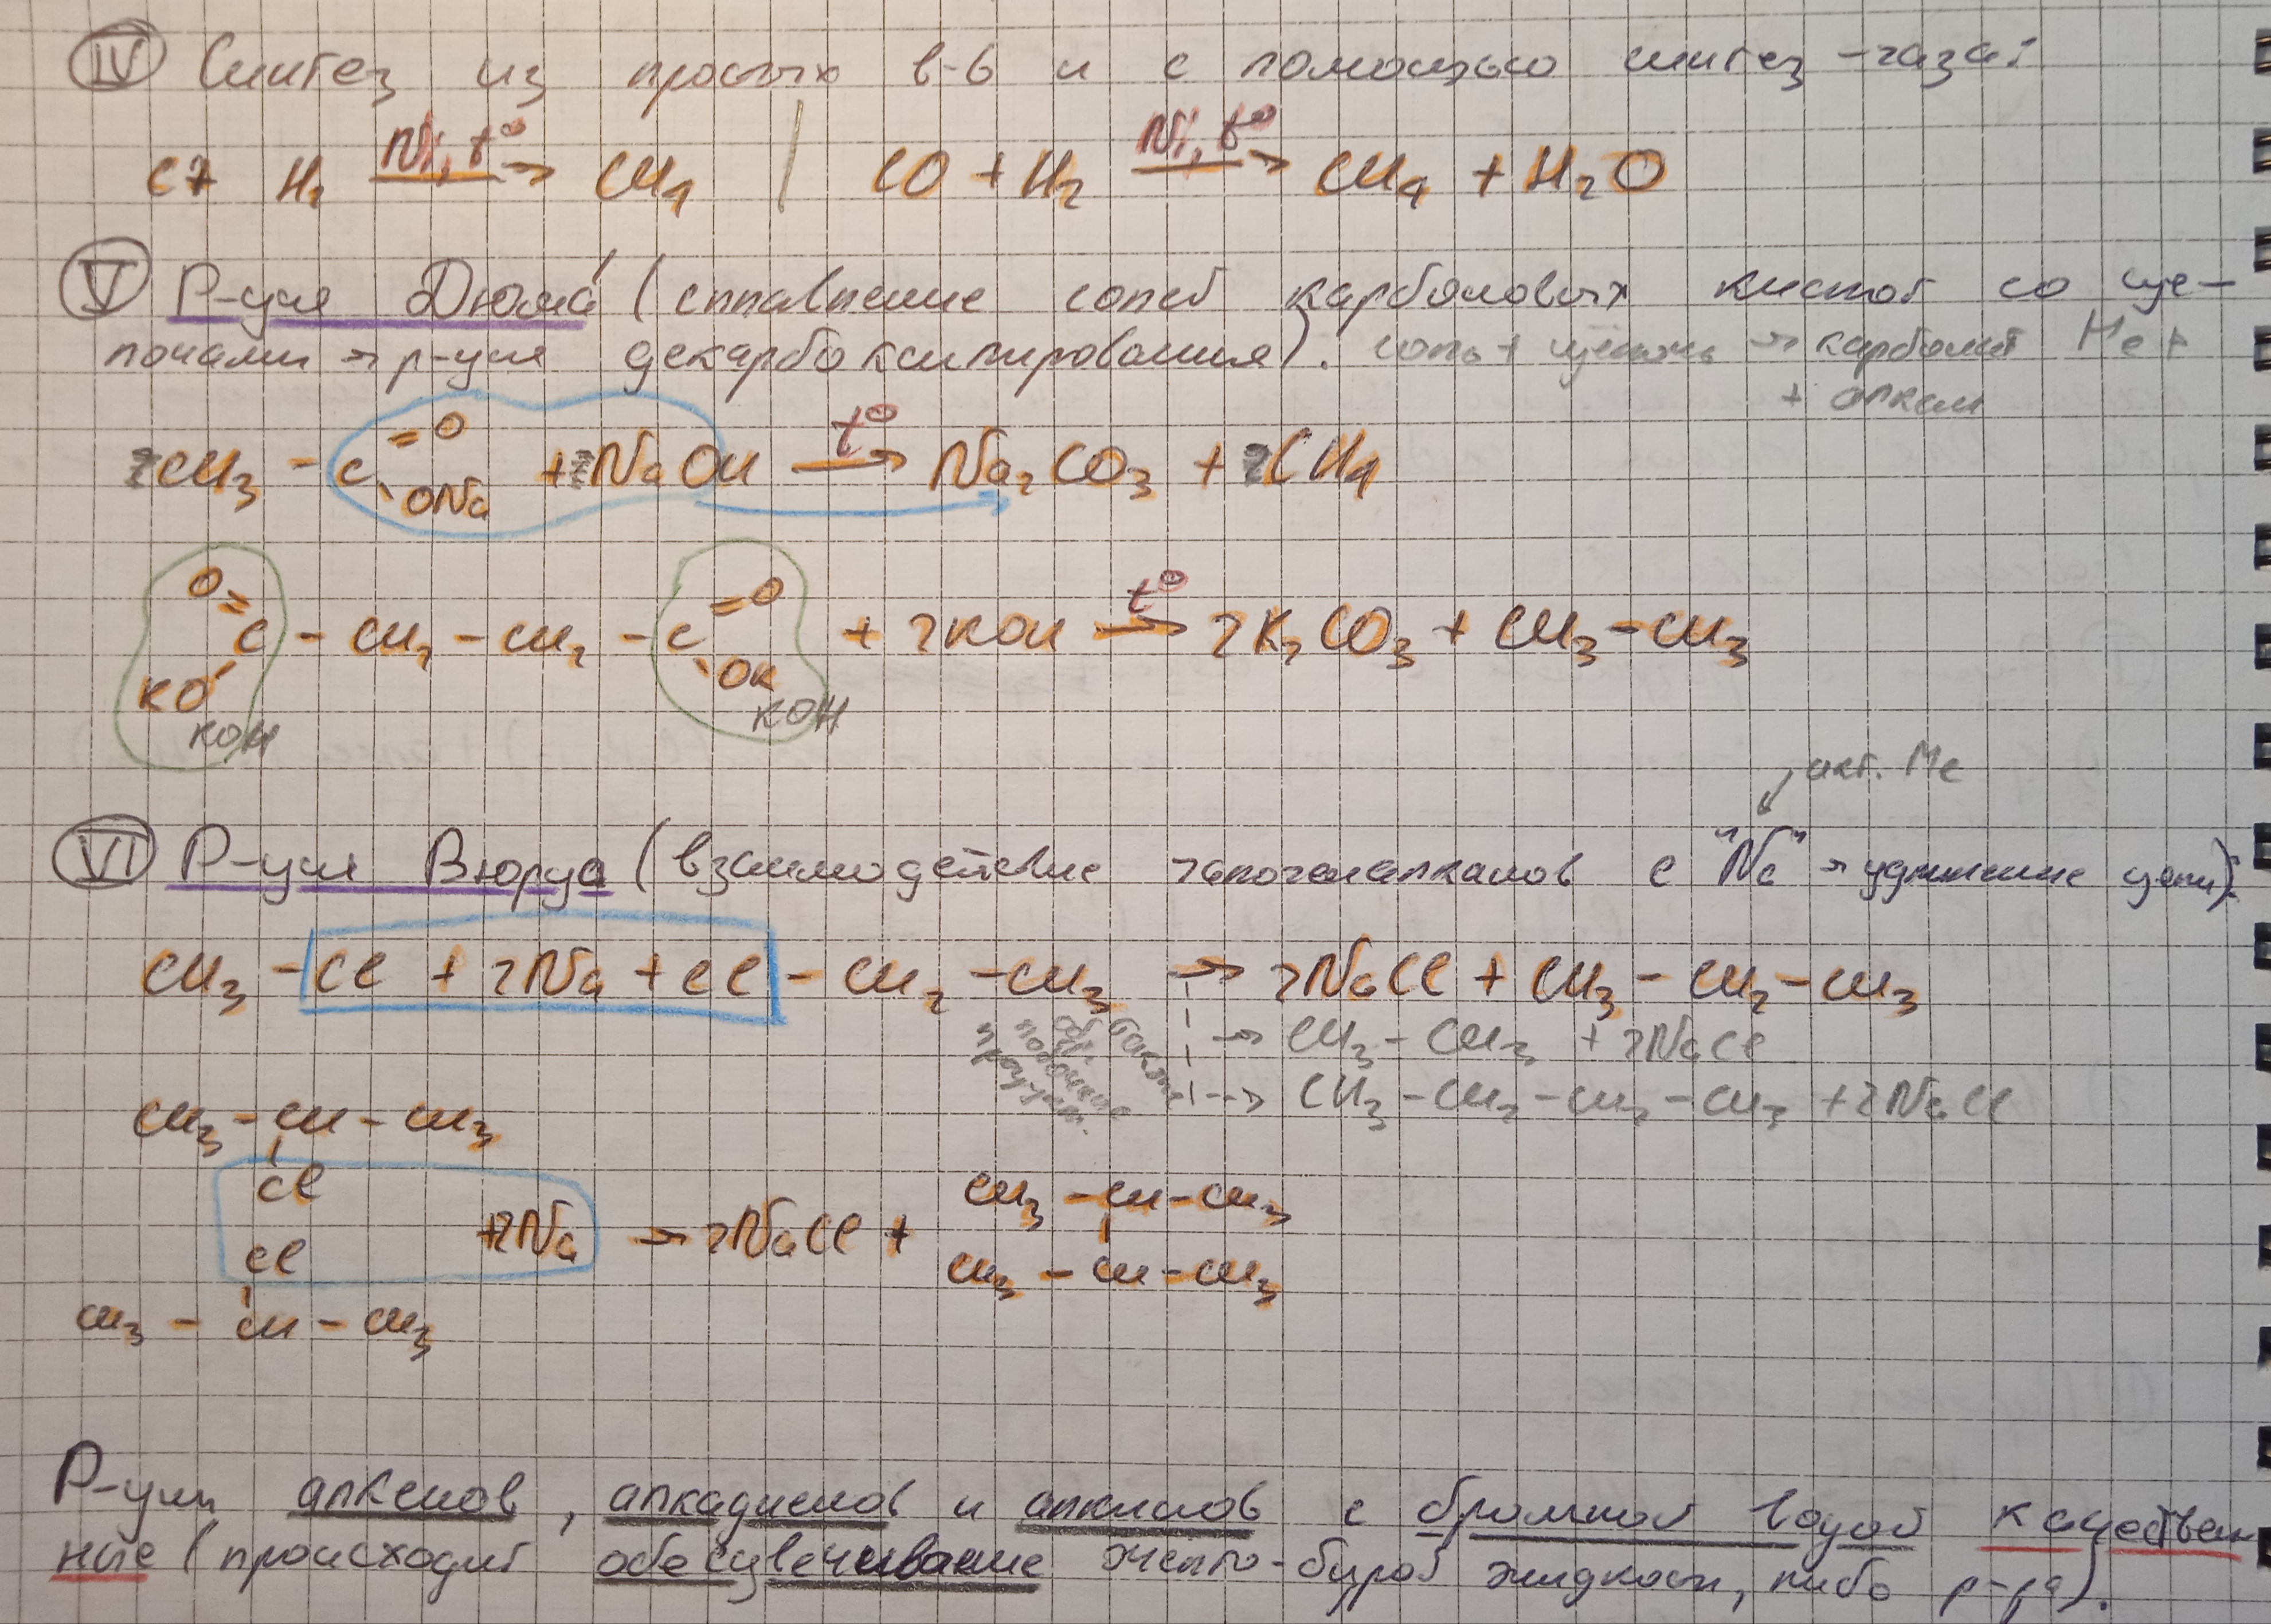 IV Синтез из простых в-в и с помощью синтез-газа:
C + H₂ —Ni, t°→ CH₄ | CO + H₂ —Ni, t°→ CH₄ + H₂O
V Р-ция Дюма́ (сплавление солей карбоновых кислот со ще-
лочами → р-ция декарбоксилирования). соль + щёлочь → карбонат Me +
+ алкан
CH₃ – C(=O)ONa + NaOH —t°→ Na₂CO₃ + CH₄
O=C(KO) – CH₂ – CH₂ – C(=O)OK + 2KOH —t°→ 2K₂CO₃ + CH₃ – CH₃
KOH KOH
акт. Me
VI Р-ция Вюрца (взаимодействие галогеналканов с "Na" → удлинение цепи):
CH₃ – Cl + 2Na + Cl – CH₂ – CH₃ → 2NaCl + CH₃ – CH₂ – CH₃
обр. побочные продукт. → CH₃ – CH₃ + 2NaCl
→ CH₃ – CH₂ – CH₂ – CH₃ + 2NaCl
CH₃ – CH – CH₃
Cl CH₃ – CH – CH₃
+ 2Na → 2NaCl +
Cl CH₃ – CH – CH₃
CH₃ – CH – CH₃
Р-ции алкенов, алкадиенов и алкинов с бромной водой качествен
ные (происходит обесцвечивание желто-бурой жидкости, либо р-ра).